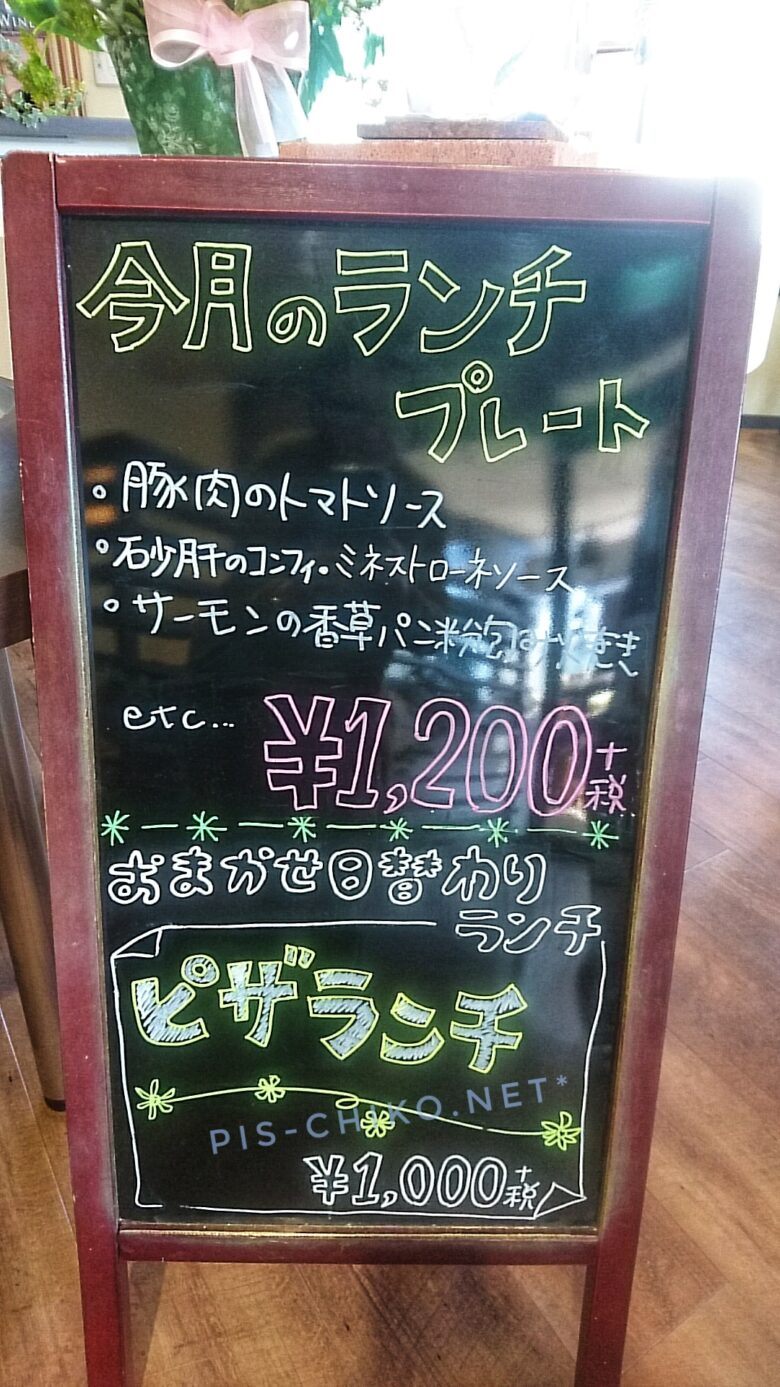 WINE
今月のランチ
プレート
・豚肉のトマトソース
・砂肝のコンフィ・ミネストローネソース
・サーモンの香草パン粉包み焼き
etc...
¥1,200+税
おまかせ日替わり
ランチ
ピザランチ
PIS-CHIKO.NET*
¥1,000+税